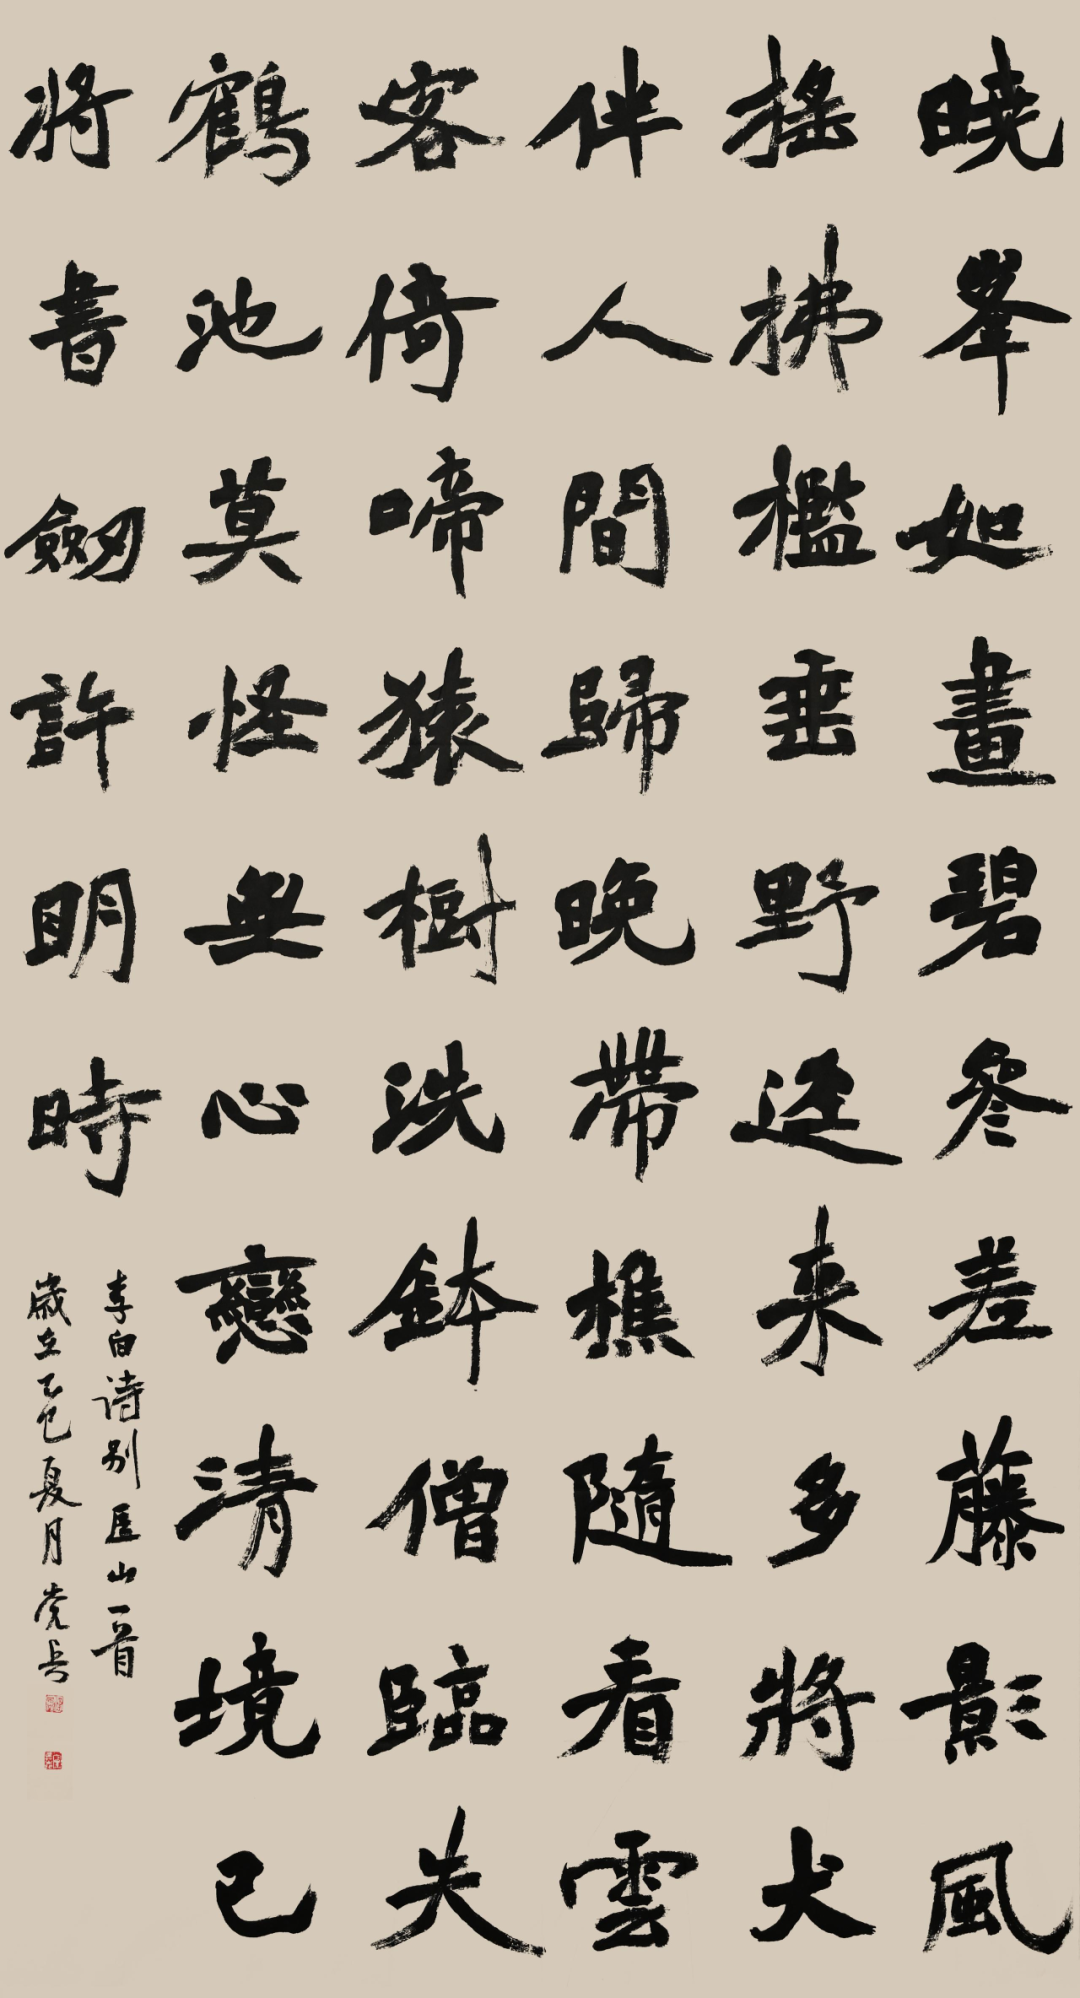 曉峯如畫碧參差藤影風
搖拂檻垂野逕来多將犬
伴人間歸晚帶樵隨看雲
客倚啼猿樹洗鉢僧臨失
鶴池莫怪無心戀清境已
將書劒許明時
李白诗别匡山一首
歲在乙巳夏月党长